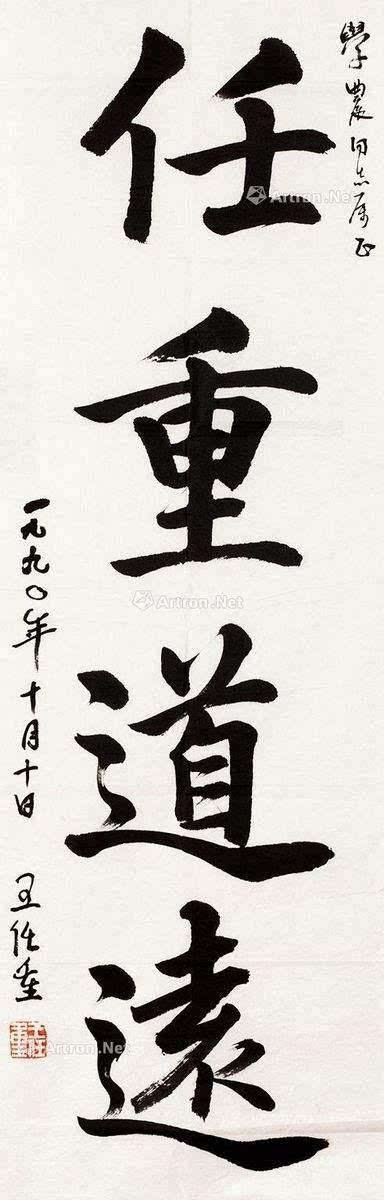 學農同志属正
任重道遠
一九九〇年十月十日
王任重
王任重
Artron.Net
Artron.Net
Artron.Net